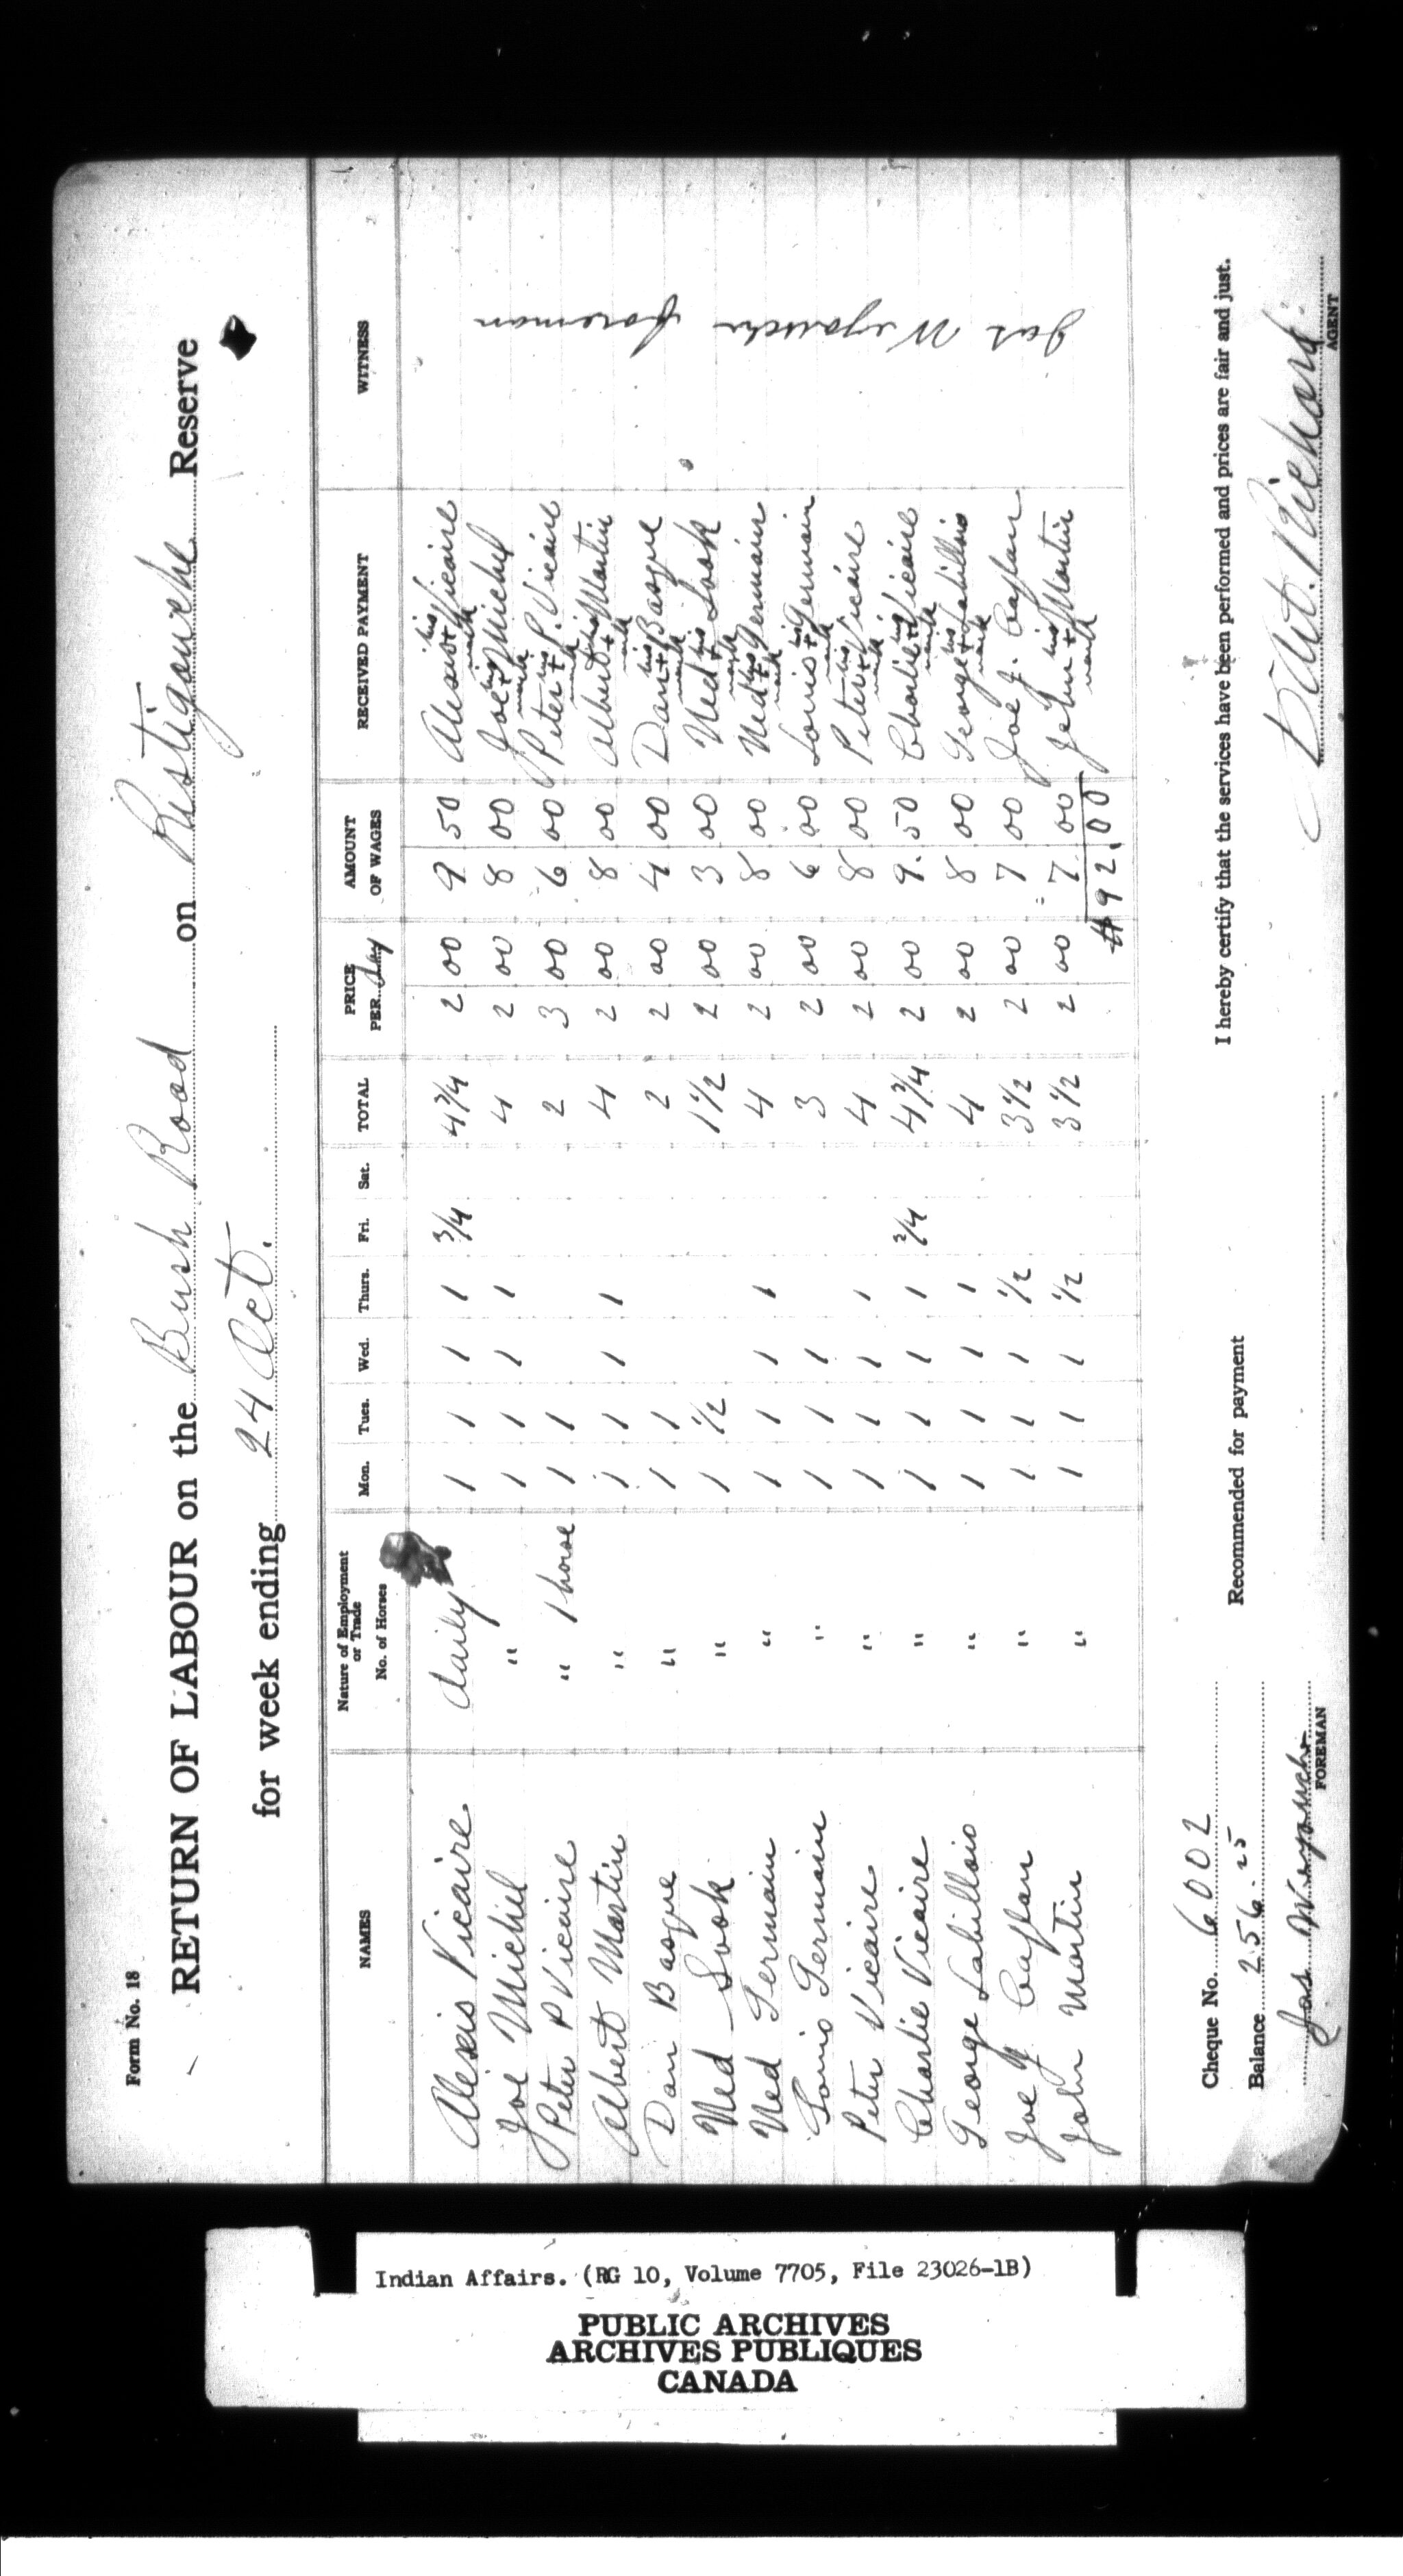 Form No. 18
RETURN OF LABOUR on the Bush Road on Ristigouche Reserve
for week ending 24 Oct.
NAMES Nature of Employment or Trade No. of Horses Mon. Tues. Wed. Thurs. Fri. Sat. TOTAL PRICE PER Day AMOUNT OF WAGES RECEIVED PAYMENT WITNESS
Alexis Vicaire daily 1 1 1 1 3/4 4 3/4 2 00 9 50 Alexis his + mark Vicaire
Joe Michel " 1 1 1 1 4 2 00 8 00 Joe his + mark Michel
Peter P Vicaire " 1 horse 1 1 2 3 00 6 00 Peter his + mark P. Vicaire
Albert Martin " 1 1 1 1 4 2 00 8 00 Albert his + mark Martin
Dan Basque " 1 1 2 2 00 4 00 Dan his + mark Basque
Ned Sook " 1 1/2 1 1/2 2 00 3 00 Ned his + mark Sook
Ned Germain " 1 1 1 1 4 2 00 8 00 Ned his + mark Germain
Louis Germain " 1 1 1 3 2 00 6 00 Louis his + mark Germain
Peter Vicaire " 1 1 1 1 4 2 00 8 00 Peter his + mark Vicaire
Charlie Vicaire " 1 1 1 1 3/4 4 3/4 2 00 9.50 Charlie his + mark Vicaire
George Labillois " 1 1 1 1 4 2 00 8 00 George his + mark Labillois
Joe J Caplan " 1 1 1 1/2 3 1/2 2 00 7 00 Joe J. Caplan
John Martin " 1 1 1 1/2 3 1/2 2 00 7 00 John his + mark Martin
$92.00
Jas foreman
I hereby certify that the services have been performed and prices are fair and just.
Cheque No. 6002
Balance 256.25
Recommended for payment
Jas
FOREMAN
Richard
AGENT
Indian Affairs. (RG 10, Volume 7705, File 23026-1B)
PUBLIC ARCHIVES
ARCHIVES PUBLIQUES
CANADA